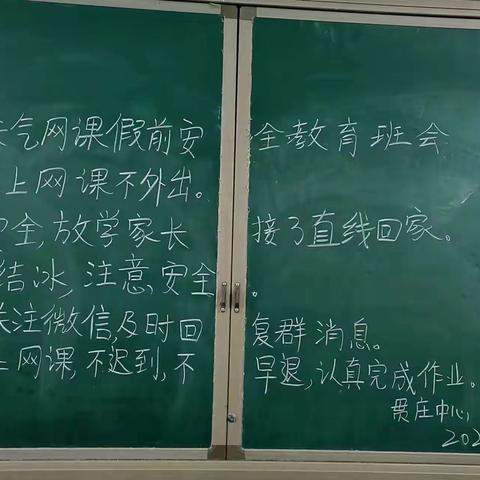 天气网课假前安全教育班会
上网课不外出。
全,放学家长接了直线回家。
结冰,注意安全。
关注微信,及时回复群消息。
上网课,不迟到,不早退,认真完成作业。
贾庄中心
202